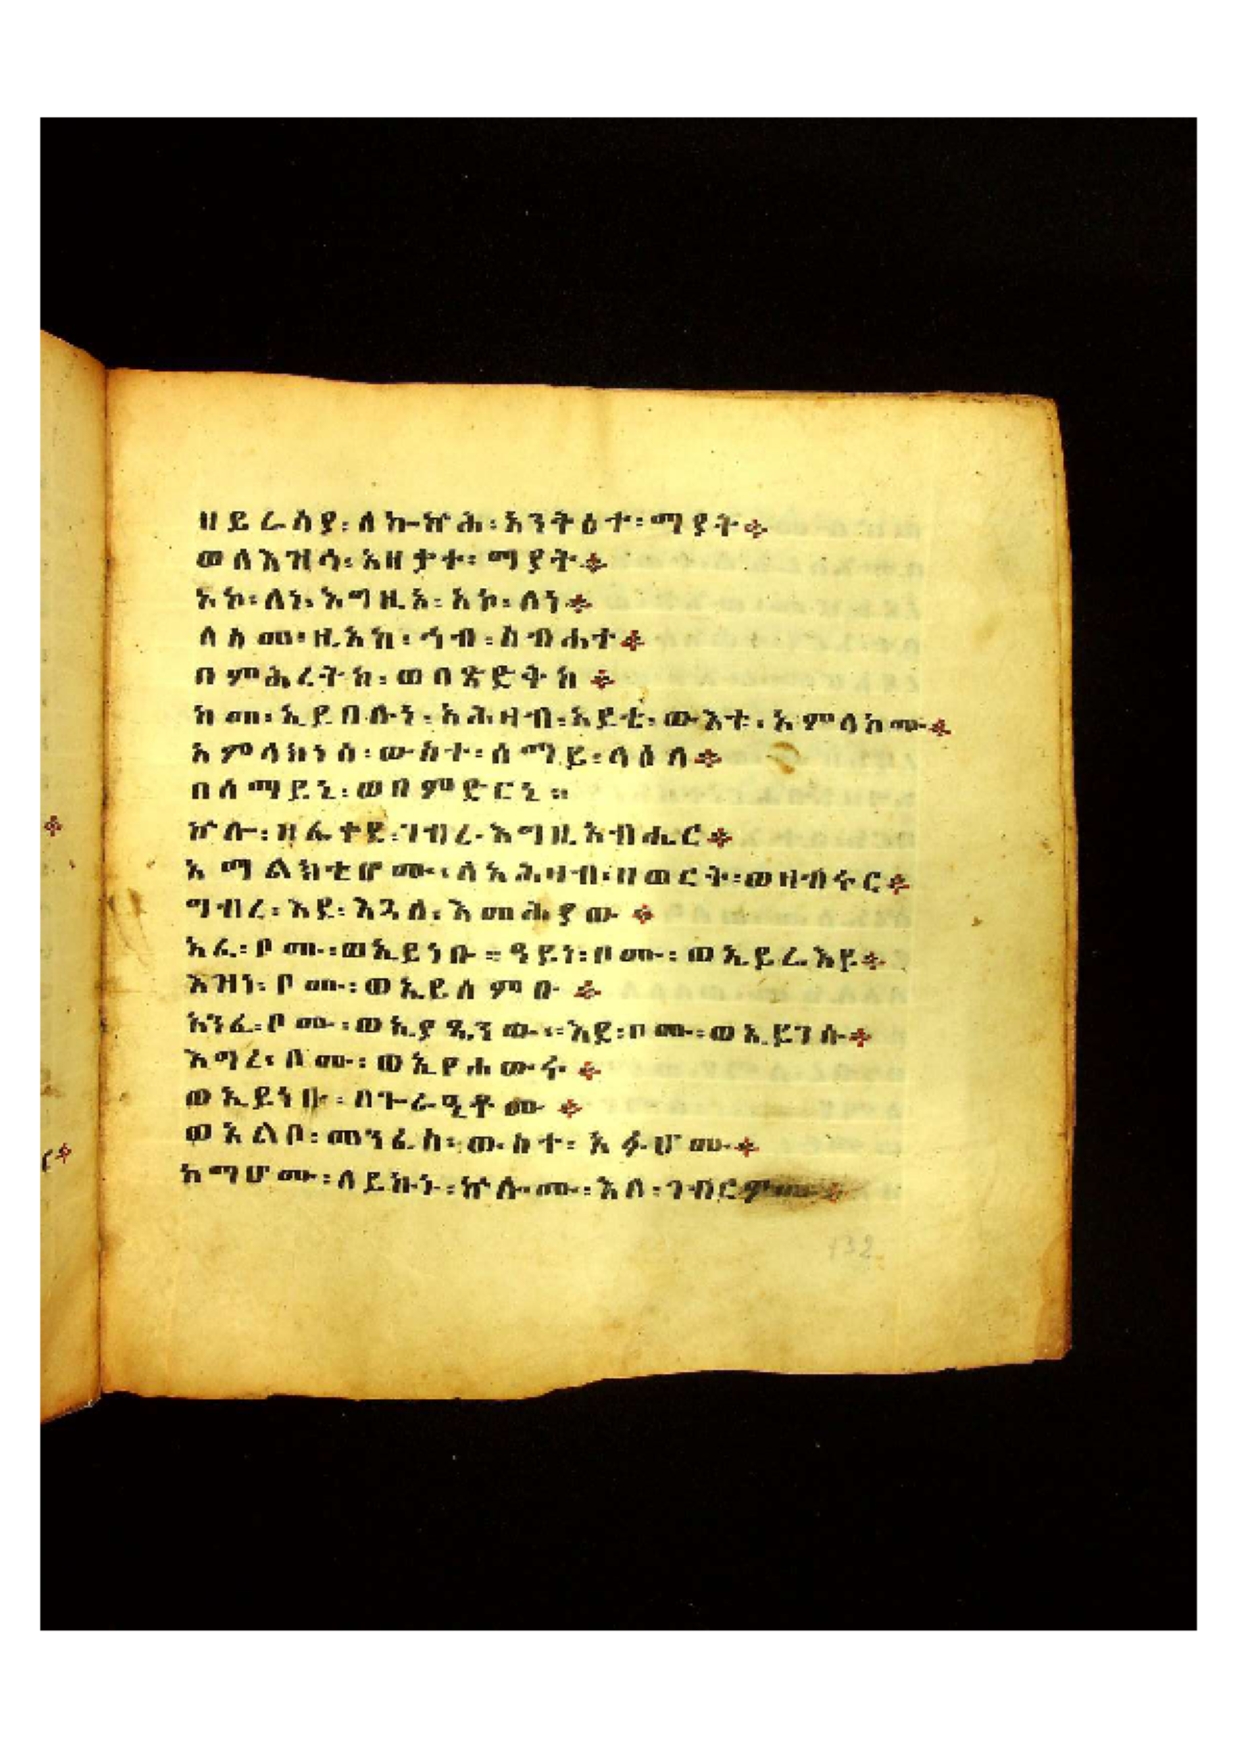 ዘይሬስያ፡ ለኰኵሕ፡ አንትዕተ፡ ማያት፨
ወለእዝኅ፡ አዘቃተ፡ ማያት፨
አኮ፡ ለነ፡ እግዚኦ፡ አኮ፡ ለነ፨
ለስመ፡ ዚአከ፡ ሀብ፡ ስብሐተ፨
በምሕረትከ፡ ወበጽድቅከ፨
ከመ፡ ኢይበሉነ፡ አሕዛብ፡ አይቴ፡ ውእቱ፡ አምላኮሙ፨
አምላክነሰ፡ ውስተ፡ ሰማይ፡ ላዕለ፨
በሰማይኒ፡ ወበምድርኒ።
ኵሉ፡ ዘፈቀደ፡ ገብረ፡ እግዚአብሔር፨
አማልክቲሆሙ፡ ለአሕዛብ፡ ዘወርቅ፡ ወዘብሩር፨
ግብረ፡ እደ፡ እጓለ፡ እመሕያው፨
አፈ፡ ቦሙ፡ ወኢይነቡ። ዓይነ፡ ቦሙ፡ ወኢይሬእዩ፨
እዝነ፡ ቦሙ፡ ወኢይሰምዑ፨
አንፈ፡ ቦሙ፡ ወኢያጼንው፡ እደ፡ ቦሙ፡ ወኢይገሱ፨
እግረ፡ ቦሙ፡ ወኢየሐውሩ፨
ወኢይነቡ፡ በጕራዒቶሙ፨
ወአልቦ፡ መንፈስ፡ ውስተ፡ አፉሆሙ፨
ከማሆሙ፡ ለይኩኑ፡ ኵሎሙ፡ እለ፡ ገብርዎሙ፨
132